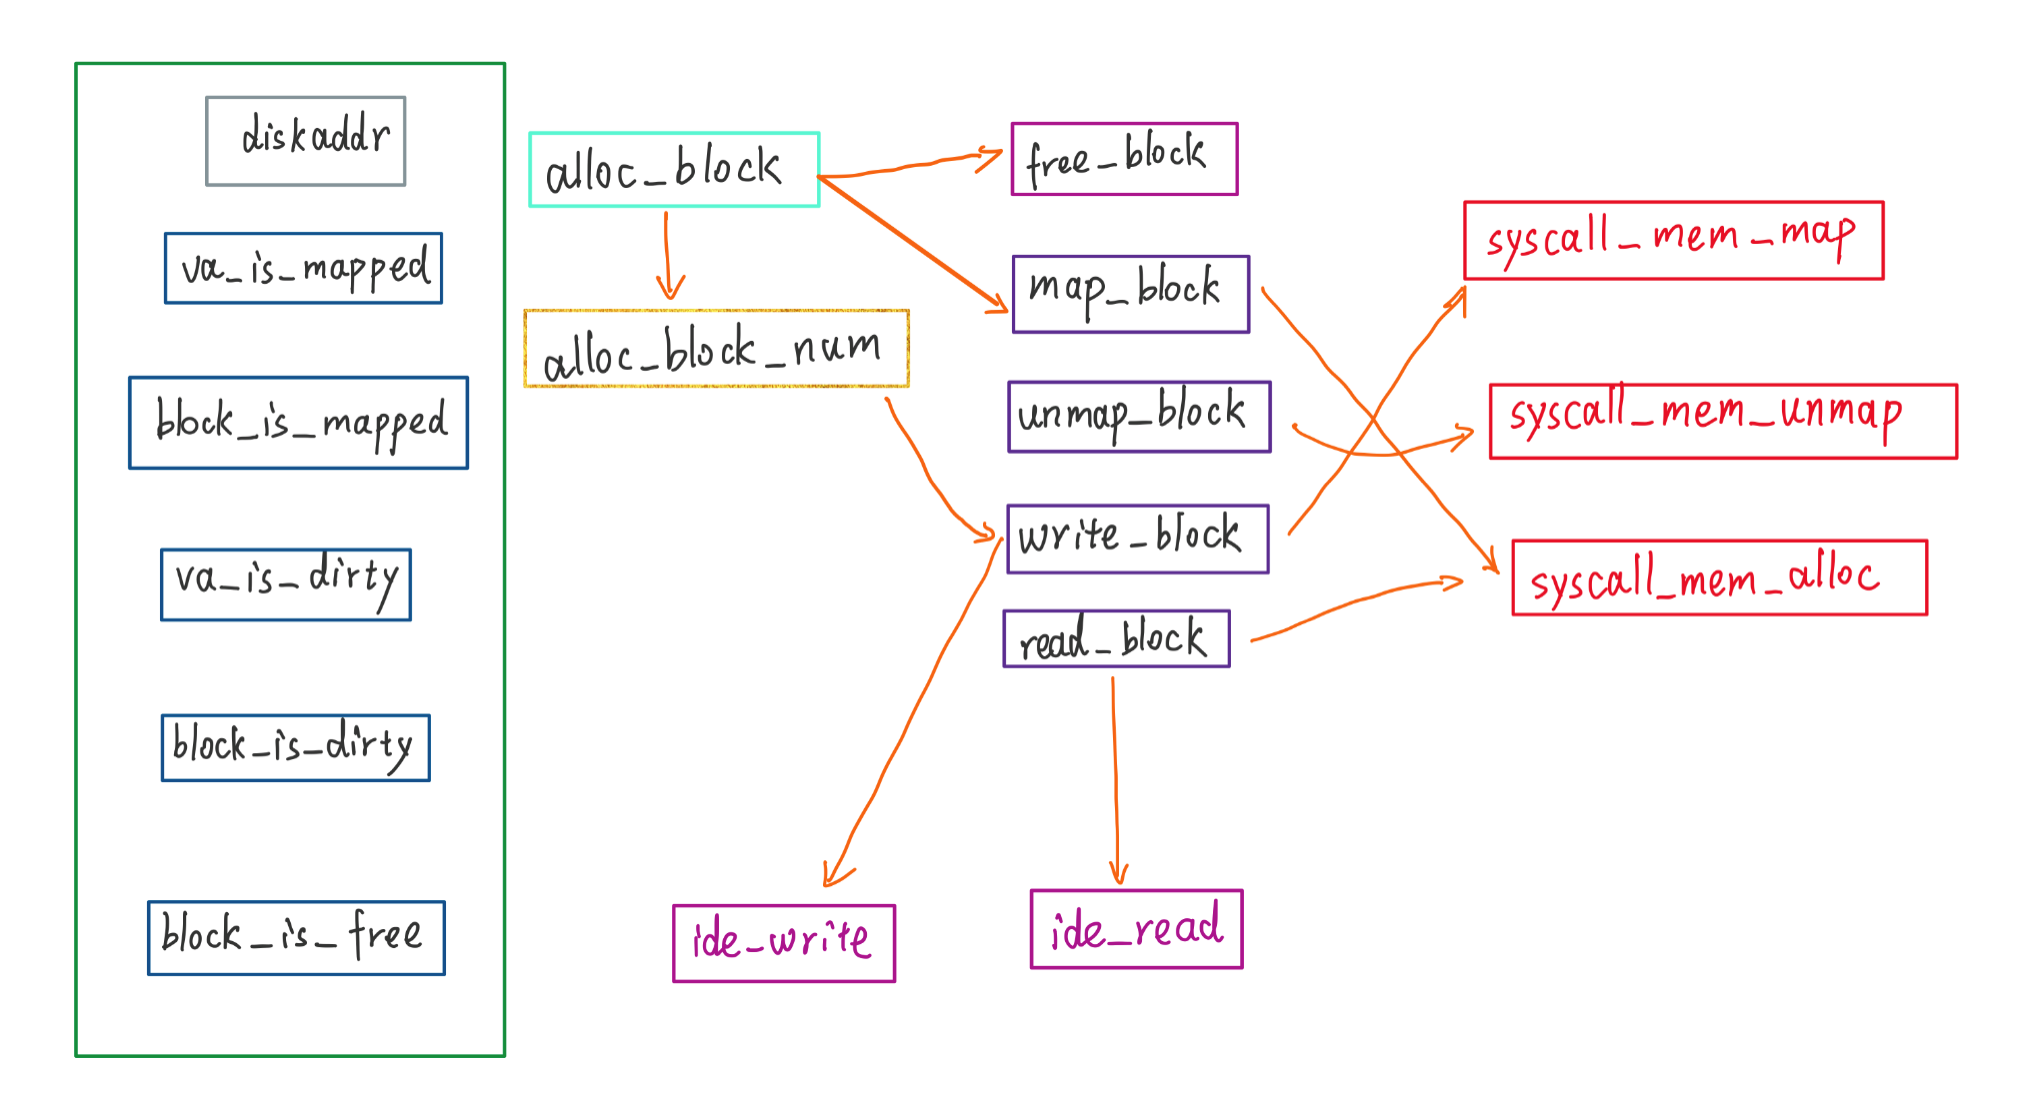 diskaddr
va_is_mapped
block_is_mapped
va_is_dirty
block_is_dirty
block_is_free
alloc_block
alloc_block_num
free_block
map_block
unmap_block
write_block
read_block
syscall_mem_map
syscall_mem_unmap
syscall_mem_alloc
ide_write
ide_read